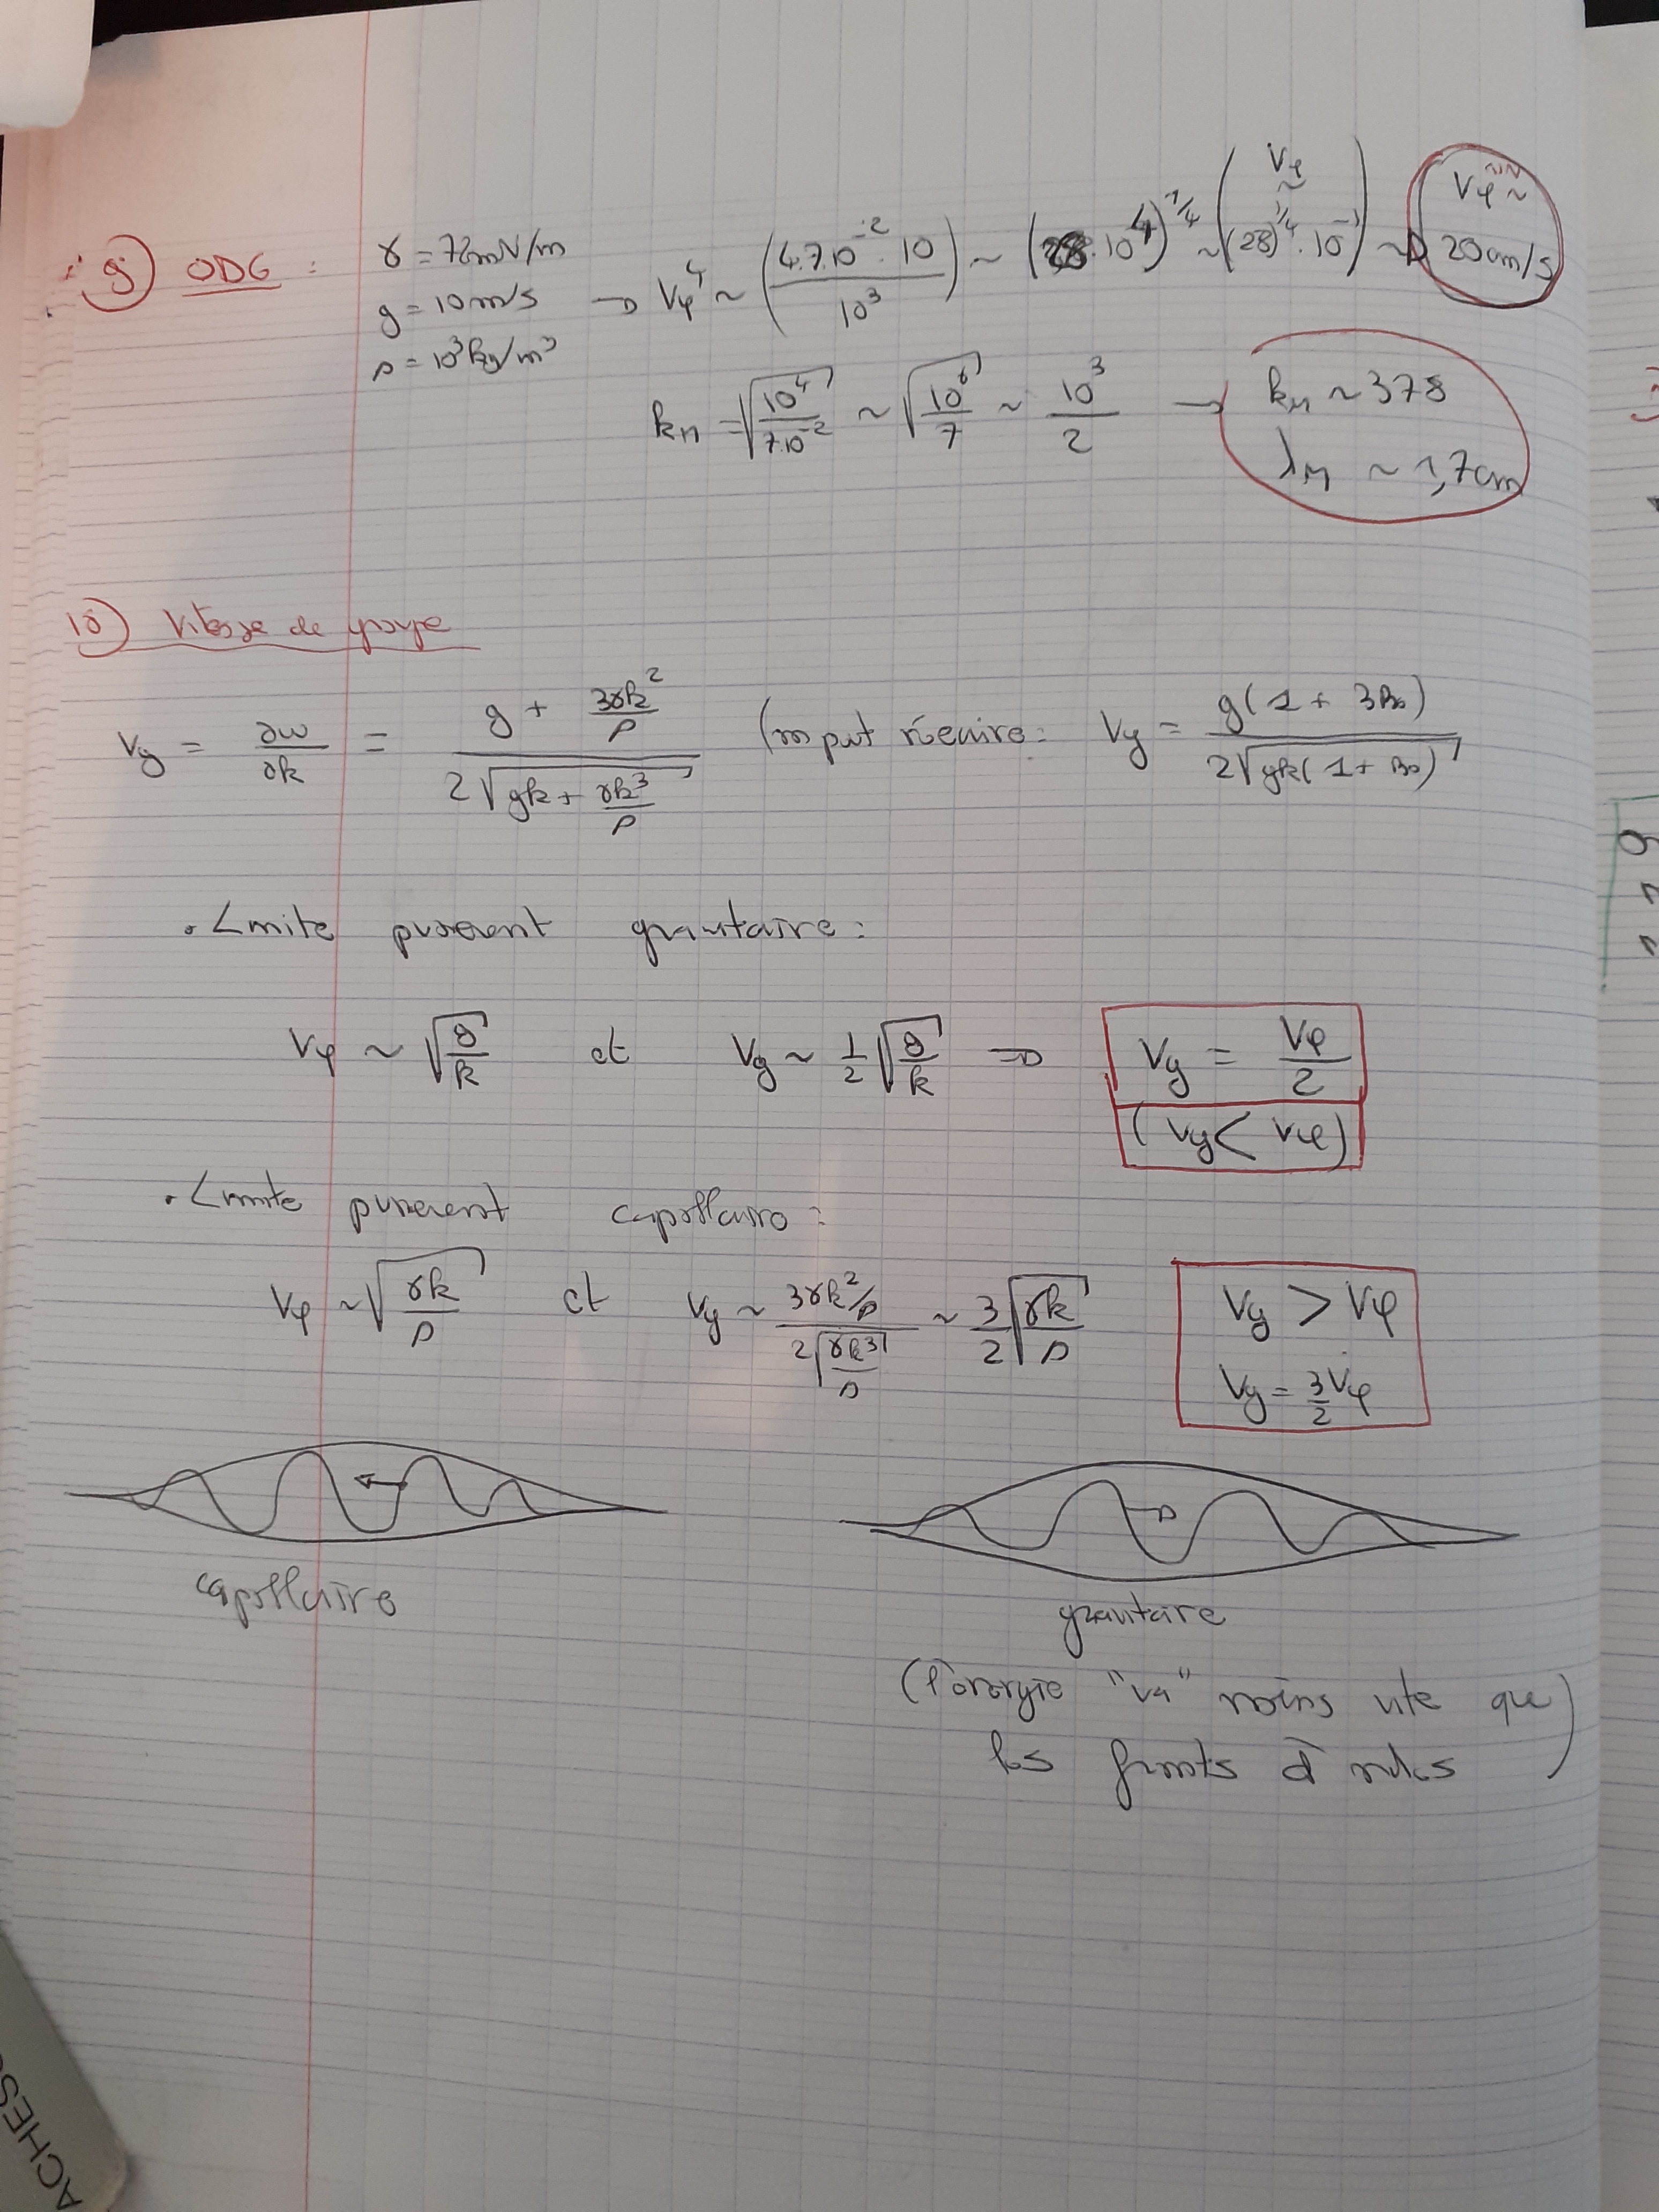 9) ODG : γ = 72mN/m
g = 10m/s → Vφ⁴ ~ (4.7.10⁻².10 / 10³) ~ (28.10⁻⁴)^1/4 ~ (Vφ ~ (28)^1/4.10⁻¹) → Vφ^min ~ 20cm/s
ρ = 10³kg/m³
k_M = √(10⁴/7.10⁻²) ~ √(10⁶/7) ~ 10³/2 → k_M ~ 378
λ_M ~ 1,7cm
10) Vitesse de groupe
Vg = ∂ω/∂k = (g + 3γk²/ρ) / (2√(gk + γk³/ρ)) (on peut réécrire : Vg = g(1 + 3Bo) / (2√(gk(1 + Bo)))
. Limite purement gravitaire :
Vφ ~ √(g/k) et Vg ~ 1/2 √(g/k) ⇒ Vg = Vφ/2
(Vg < Vφ)
. Limite purement capillaire :
Vφ ~ √(γk/ρ) et Vg ~ (3γk²/ρ) / (2√(γk³/ρ)) ~ 3/2 √(γk/ρ) Vg > Vφ
Vg = 3/2 Vφ
capillaire
gravitaire
(l'énergie "va" moins vite que
les fronts d'ondes)
ACHES